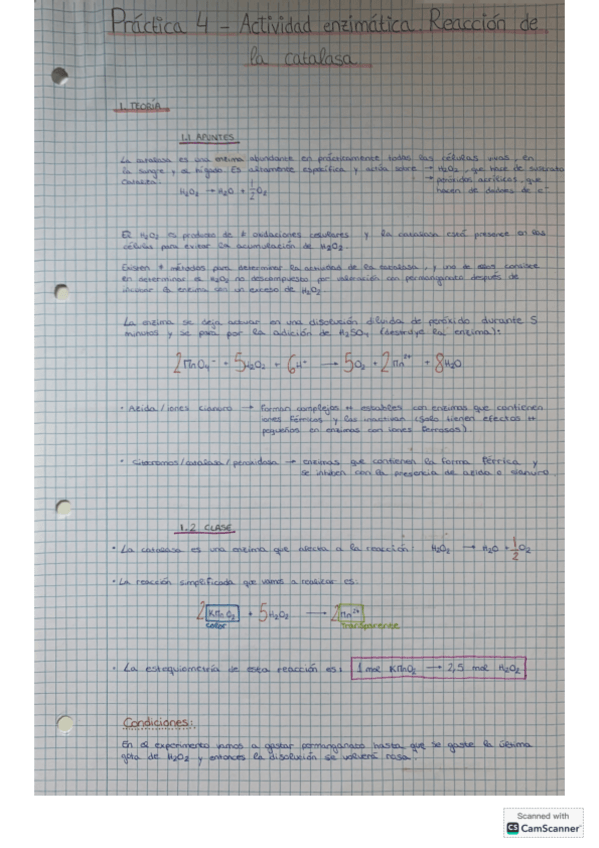 Práctica 4 - Actividad enzimática. Reacción de
la catalasa
1. TEORÍA
1.1 APUNTES
La catalasa es una enzima abundante en prácticamente todas las células vivas, en
la sangre y el hígado. Es altamente específica y actúa sobre → H₂O₂, que hace de sustrato
→ peróxidos acrílicos, que
hacen de dadores de e⁻
Cataliza:
H₂O₂ → H₂O + ½O₂
El H₂O₂ es producto de ≠ oxidaciones celulares y la catalasa está presente en las
células para evitar la acumulación de H₂O₂.
Existen ≠ métodos para determinar la actividad de la catalasa, y uno de ellos consiste
en determinar el H₂O₂ no descompuesto por valoración con permanganato después de
incubar la enzima con un exceso de H₂O₂
La enzima se deja actuar en una disolución diluida de peróxido durante 5
minutos y se para por la adición de H₂SO₄ (destruye la enzima):
2MnO₄⁻ + 5H₂O₂ + 6H⁺ → 5O₂ + 2Mn²⁺ + 8H₂O
· Azida/iones cianuro → Forman complejos estables con enzimas que contienen
iones férricos y las inactivan (Solo tienen efectos
pequeños en enzimas con iones ferrosos).
· Citocromos/catalasa/peroxidasa → enzimas que contienen la forma férrica y
se inhiben con la presencia de azida o cianuro
1.2 CLASE
· La catalasa es una enzima que afecta a la reacción H₂O₂ → H₂O + ½O₂
· La reacción simplificada que vamos a realizar es:
2 KMnO₂ + 5H₂O₂ → 2 Mn²⁺
color transparente
· La estequiometría de esta reacción es: 1 mol KMnO₂ → 2,5 mol H₂O₂
Condiciones:
En el experimento vamos a gastar permanganato hasta que se gaste la última
gota de H₂O₂ y entonces la disolución se volverá rosa.
Scanned with
CS CamScanner